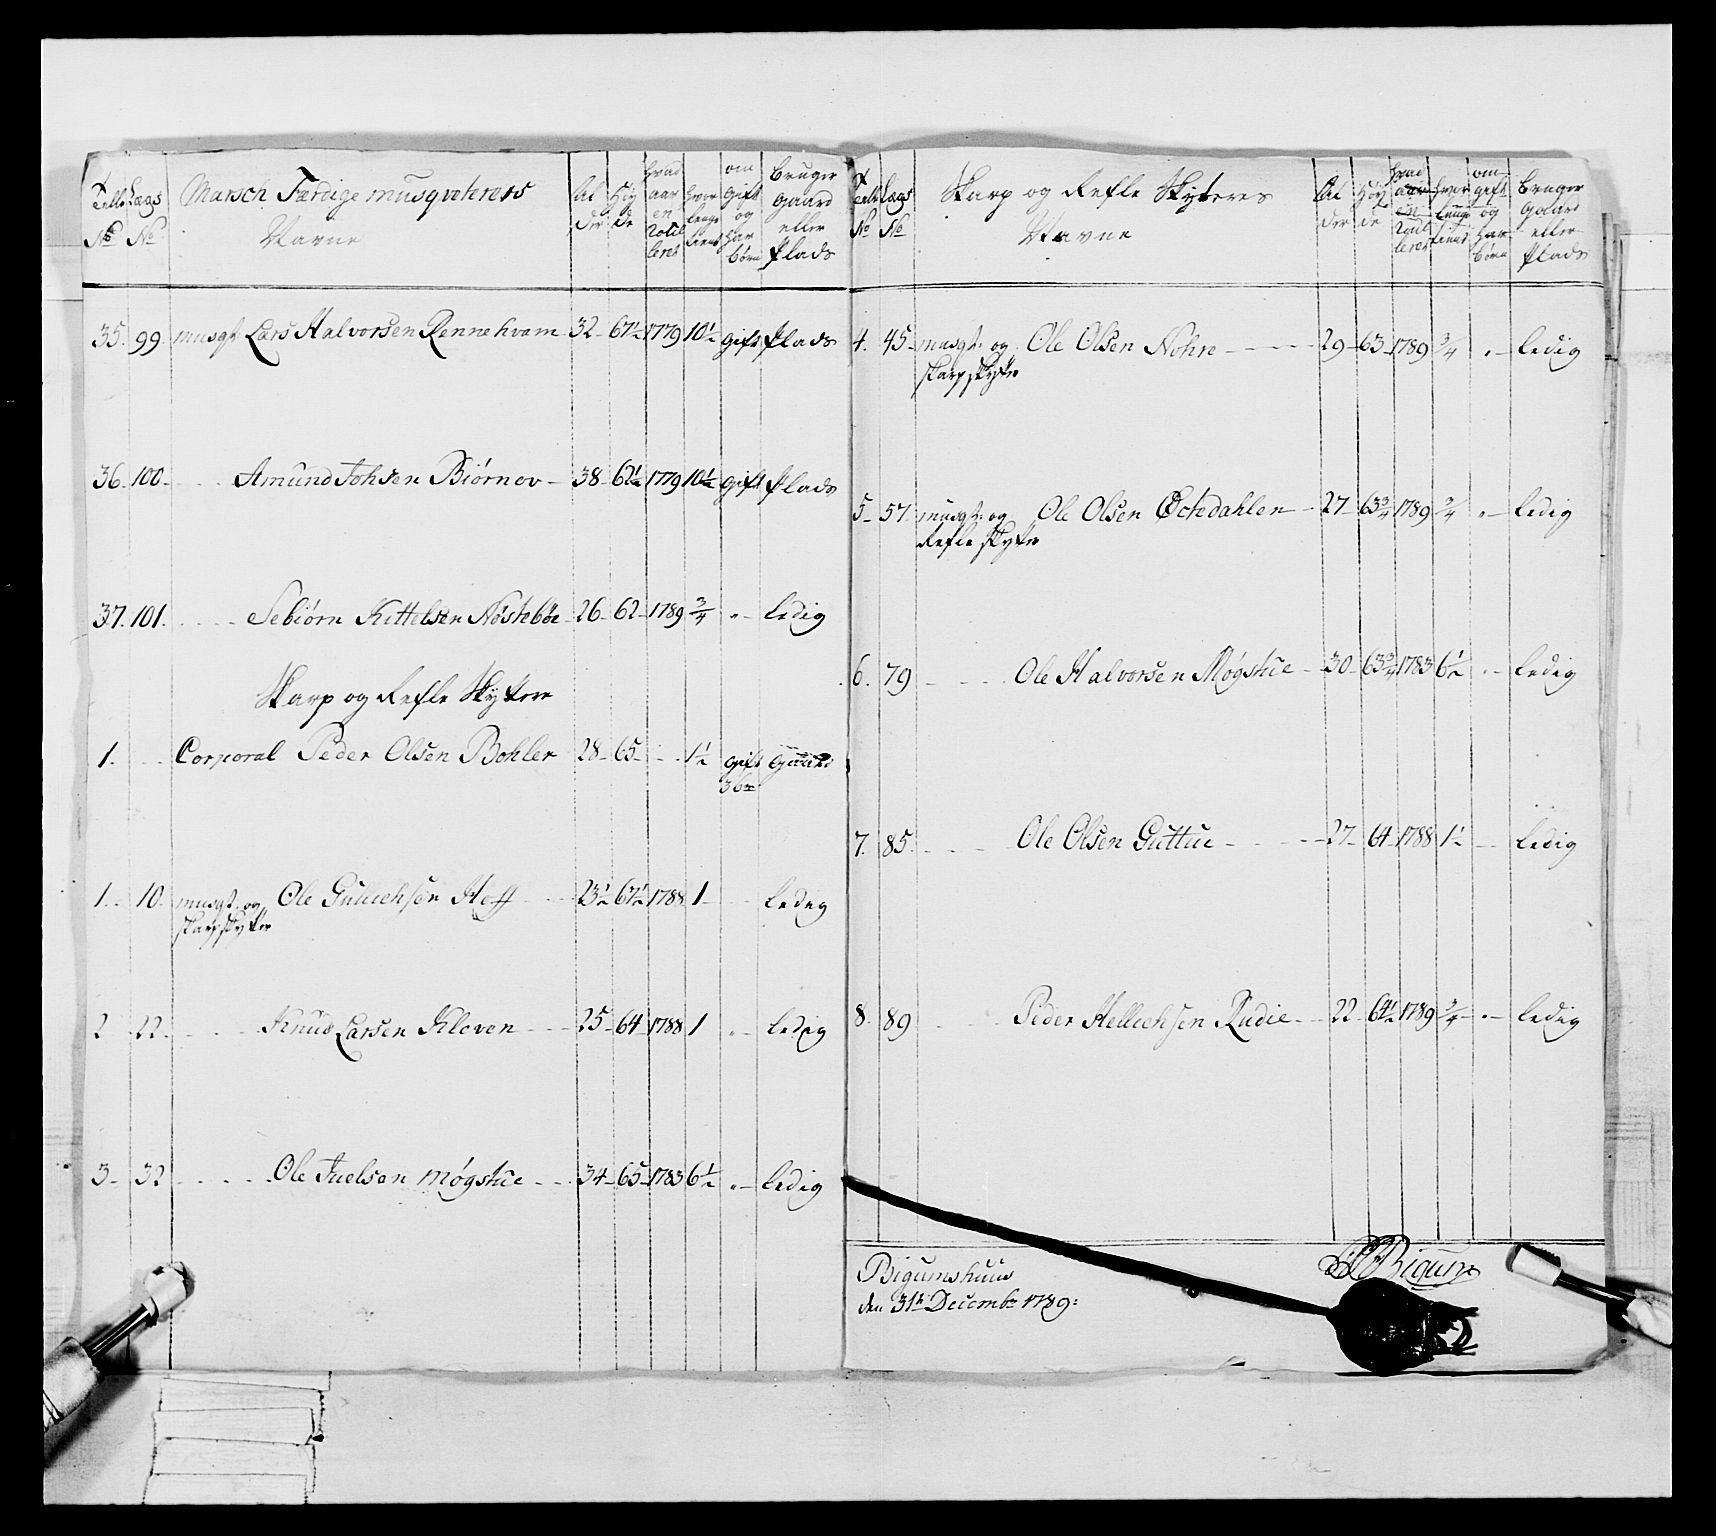 Telle No Lægs No Marsch Færdige musqveterers Navne Al der Høy de hvad aar en roullerer hvor lenge tient om gift og har børn bruger gaard eller Plads
35. 99. musqt Lars Halvorsen Rennehvam 32 67½ 1779 10½ gift Plads
36. 100. Amund Johsen Biørnøv 38 62½ 1779 10½ gift Plads
37. 101. Sebiørn Kittelsen Nøstebøe 26 62 1789 3/4 " ledig
Skarp og Refle Skyttere
1. Corporal Peder Olsen Bohler 28 65 1½ gift 3 bø: gaard
1. 10. musqt: og Ole Gulichsen Hoff 23½ 67½ 1788 1 ledig
skarpskytter
2 22 Knud Larsen Kleven 25 64 1788 1 " ledig
3 32 Ole Juelsen Møgstue 34 65 1783 6½ " ledig
Telle No Lægs No Skarp og Refle Skyteres Navne Al der Høy de hvad aar en roullerer hvor lenge tient om gift og har børn bruger gaard eller Plads
4. 45 musqt: og Ole Olsen Nohre 29 63 1789 3/4 " ledig
skarpskytter
5 57 musqt: og Ole Olsen Øctedahlen 27 63¾ 1789 3/4 " ledig
Refle skytter
6. 79 Ole Halvorsen Møgstue 30 63¾ 1783 6½ " ledig
7. 85. Ole Olsen Guttue 27 64 1788 1½ ledig
8. 89 Peder Hellichsen Rudie 22 64½ 1789 3/4 " ledig
Bigumshuus
den 31te Decembr 1789:
Bigum